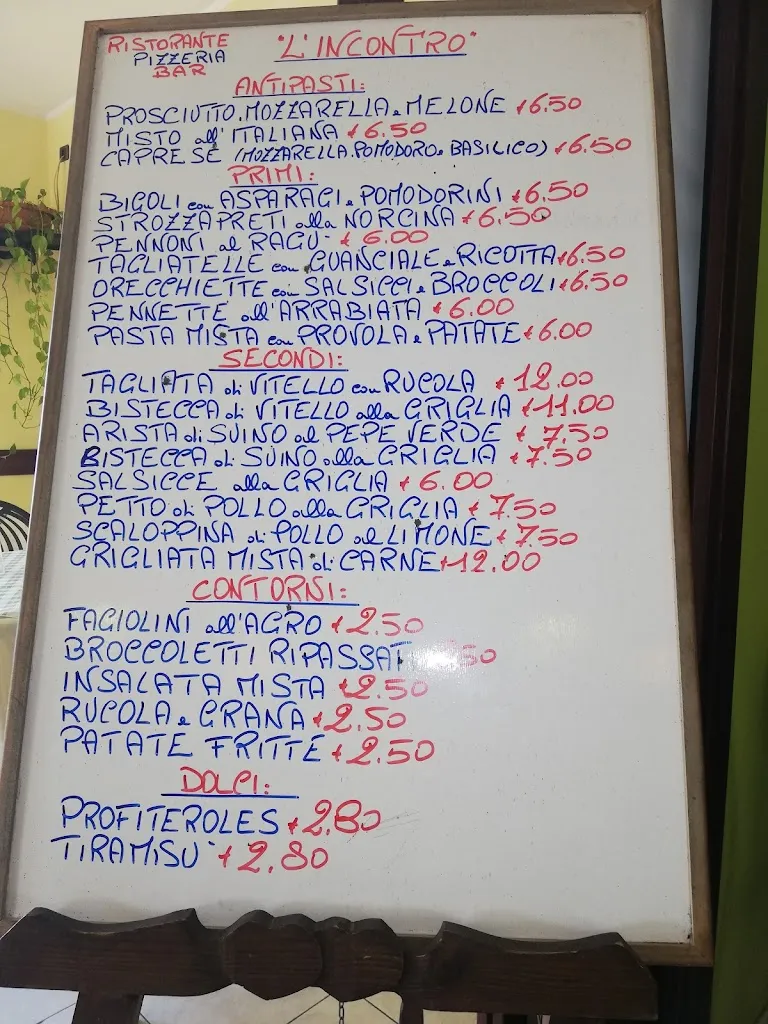 RISTORANTE
PIZZERIA
BAR
"L'INCONTRO"
ANTIPASTI:
PROSCIUTTO.MOZZARELLA e MELONE €6.50
MISTO all'ITALIANA €6.50
CAPRESE (MOZZARELLA.POMODORO e BASILICO) €6.50
PRIMI:
BIGOLI con ASPARAGI e POMODORINI €6.50
STROZZAPRETI alla NORCINA €6.50
PENNONI al RAGU' €6.00
TAGLIATELLE con GUANCIALE e RICOTTA €6.50
ORECCHIETTE con SALSICCI e BROCCOLI €6.50
PENNETTE all'ARRABIATA €6.00
PASTA MISTA con PROVOLA e PATATE €6.00
SECONDI:
TAGLIATA di VITELLO con RUCOLA €12.00
BISTECCA di VITELLO alla GRIGLIA €11.00
ARISTA di SUINO al PEPE VERDE €7.50
BISTECCA di SUINO alla GRIGLIA €7.50
SALSICCE alla GRIGLIA €6.00
PETTO di POLLO alla GRIGLIA €7.50
SCALOPPINA di POLLO al LIMONE €7.50
GRIGLIATA MISTA di CARNE €12.00
CONTORNI:
FAGIOLINI all'AGRO €2.50
BROCCOLETTI RIPASSAT 50
INSALATA MISTA €2.50
RUCOLA e GRANA €2.50
PATATE FRITTE €2.50
DOLCI:
PROFITEROLES €2.80
TIRAMISU' €2.80